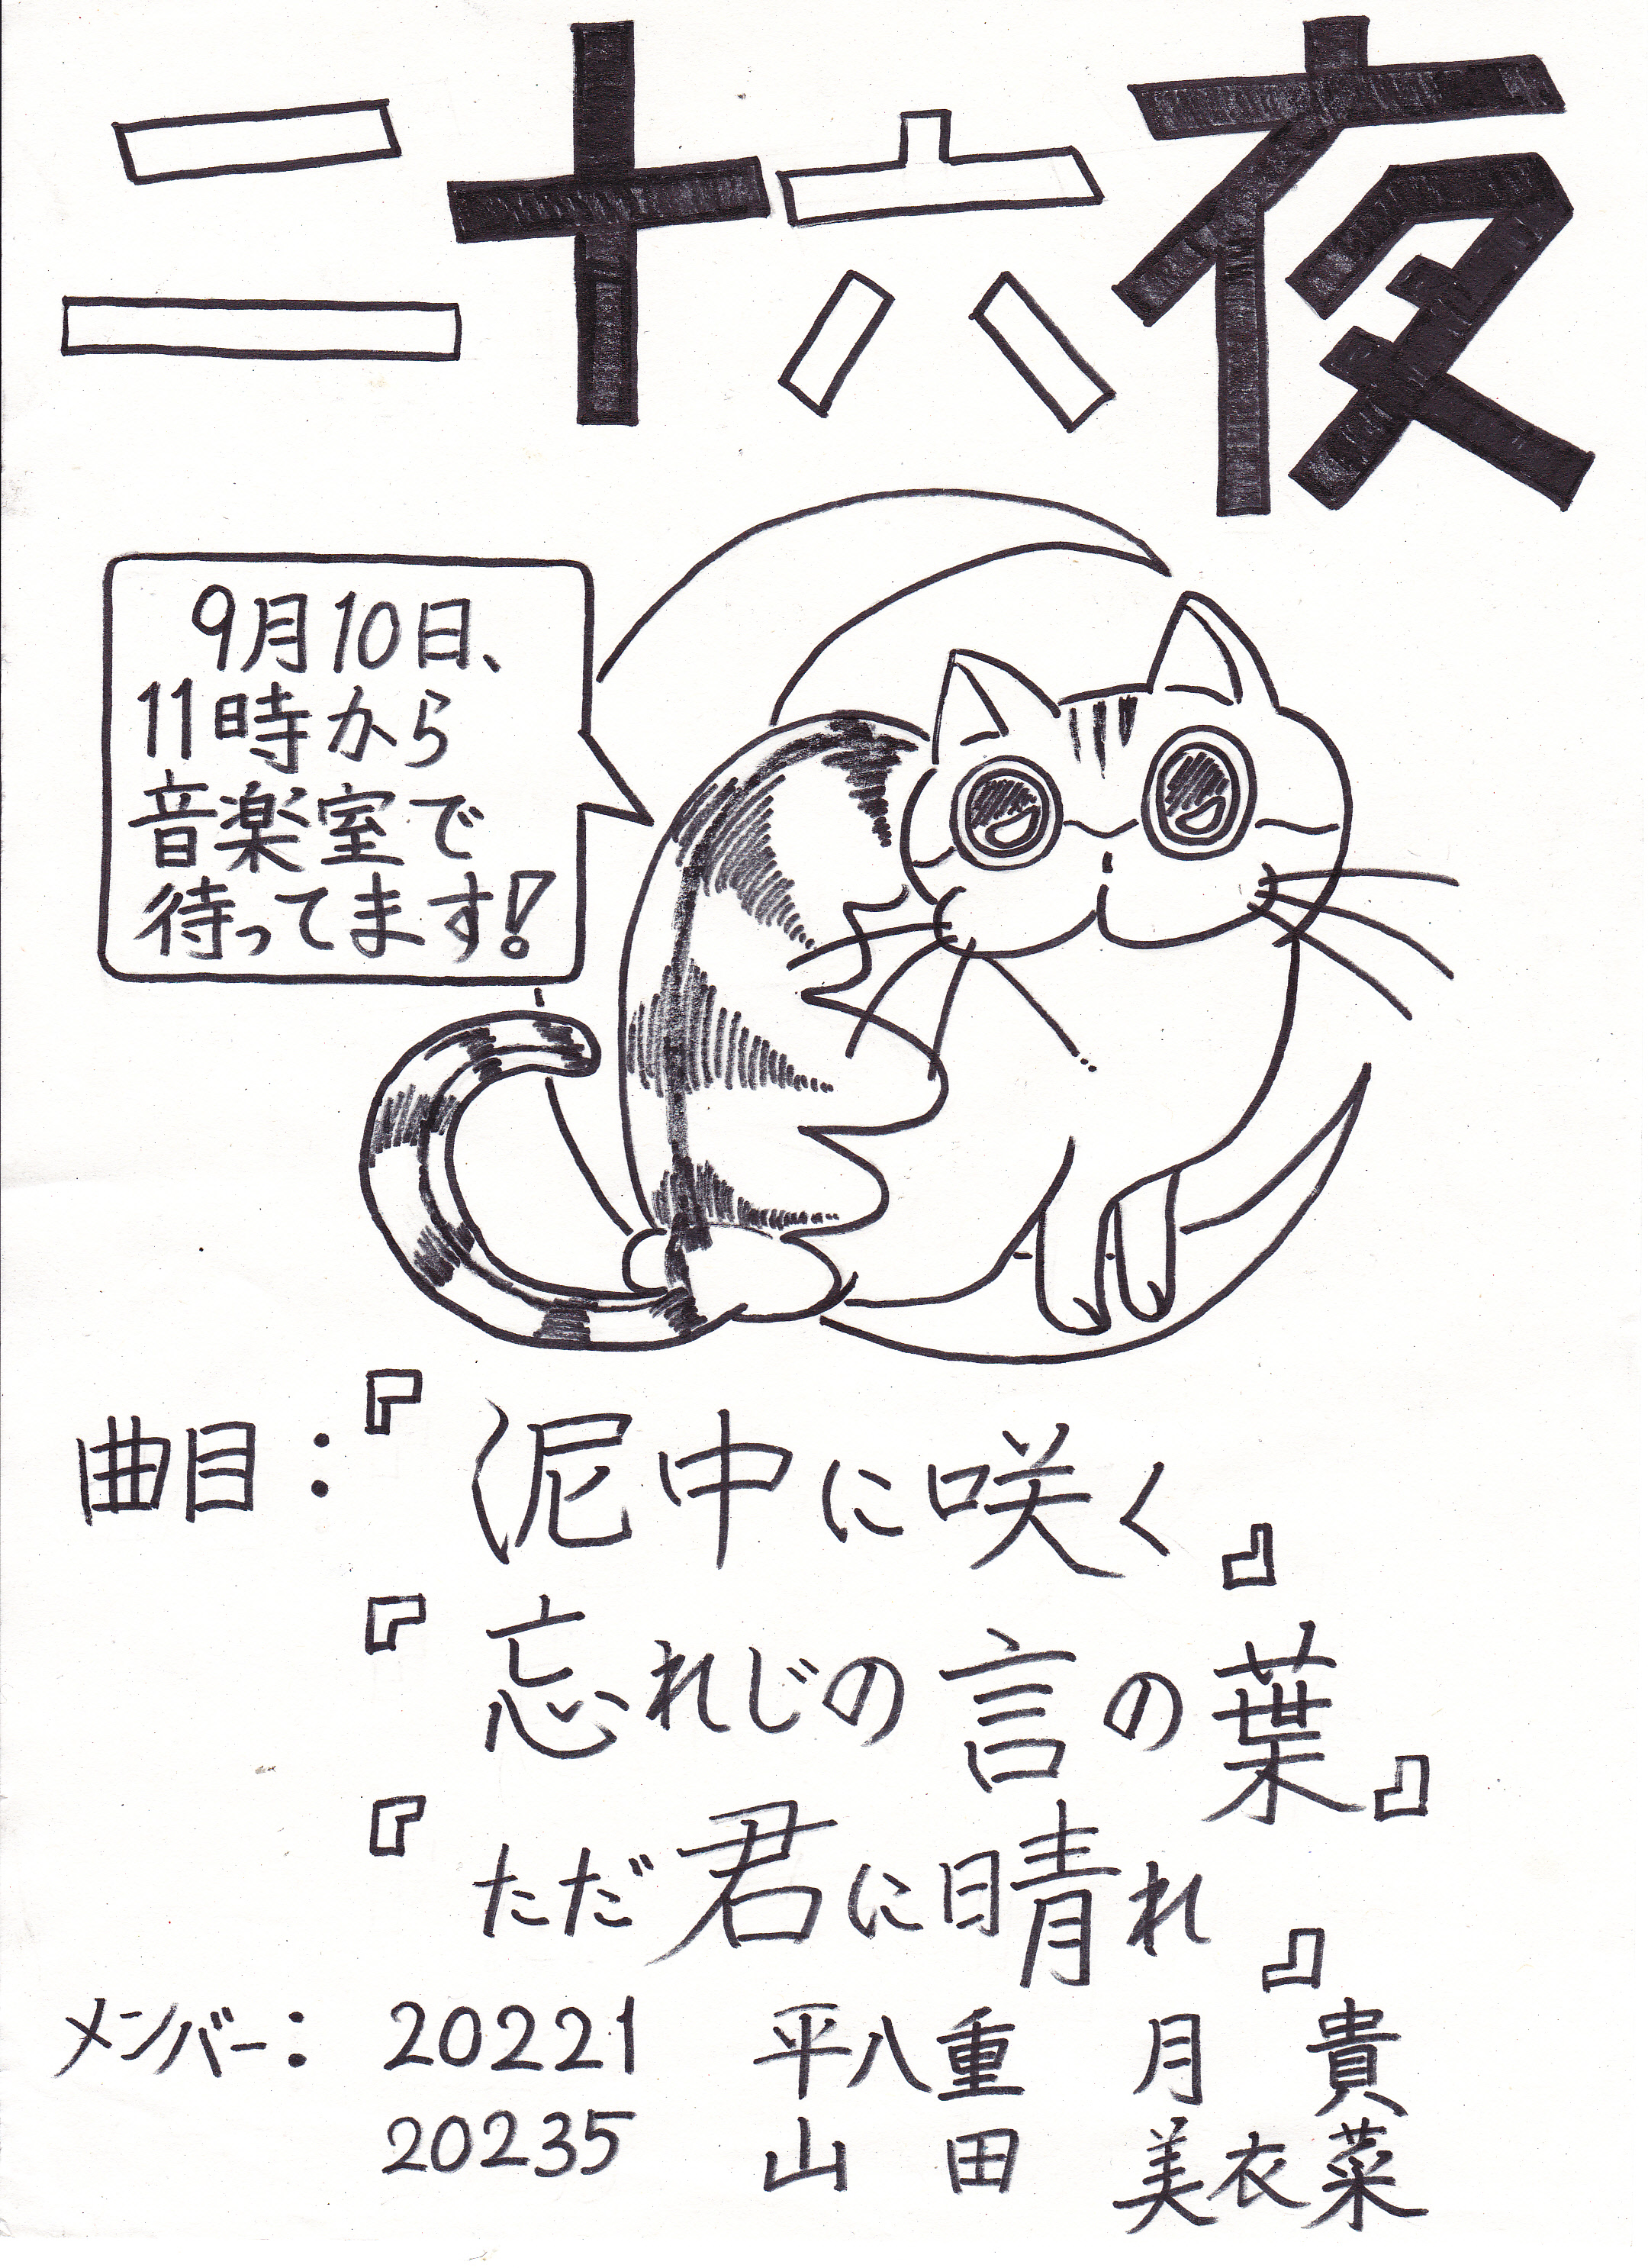 二十六夜
9月10日、
11時から
音楽室で
待ってます!
曲目:『泥中に咲く』
『忘れじの言の葉』
『ただ君に晴れ』
メンバー: 20221 平八重 月 貴
20235 山 田 美衣菜